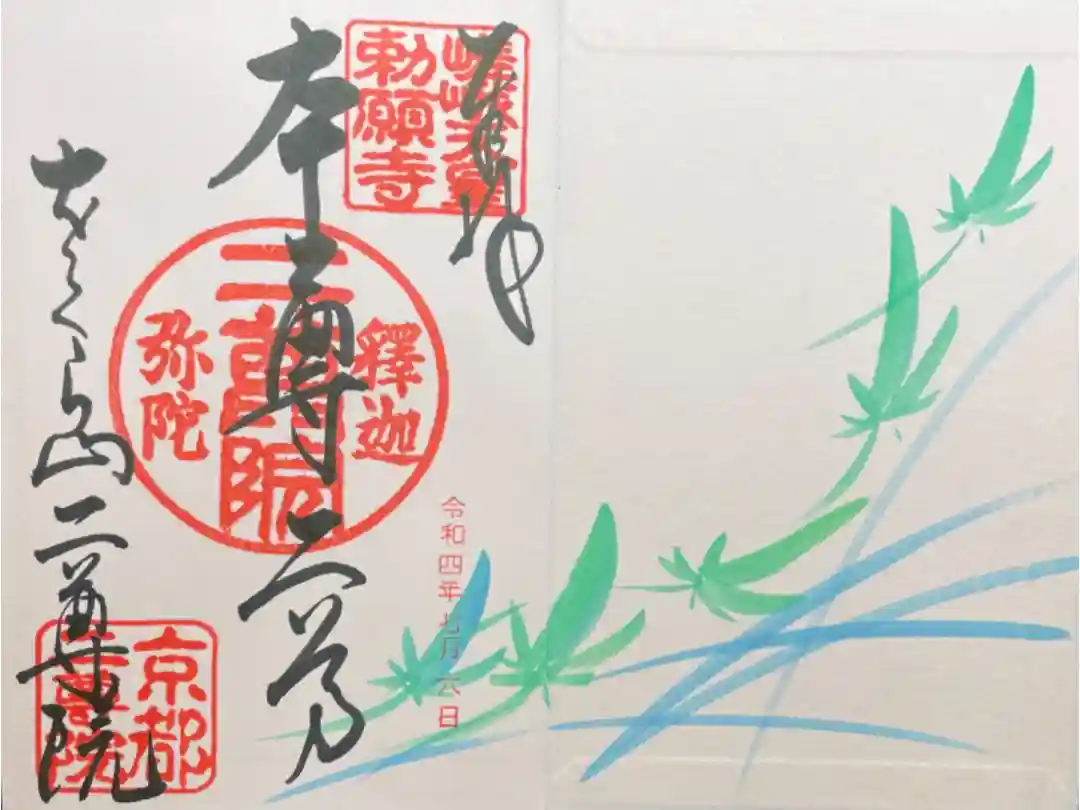 奉拝
嵯峨天皇
勅願寺
令和四年七月六日
本尊二尊
釋迦
二尊院
弥陀
をくら山二尊院
京都
二尊院